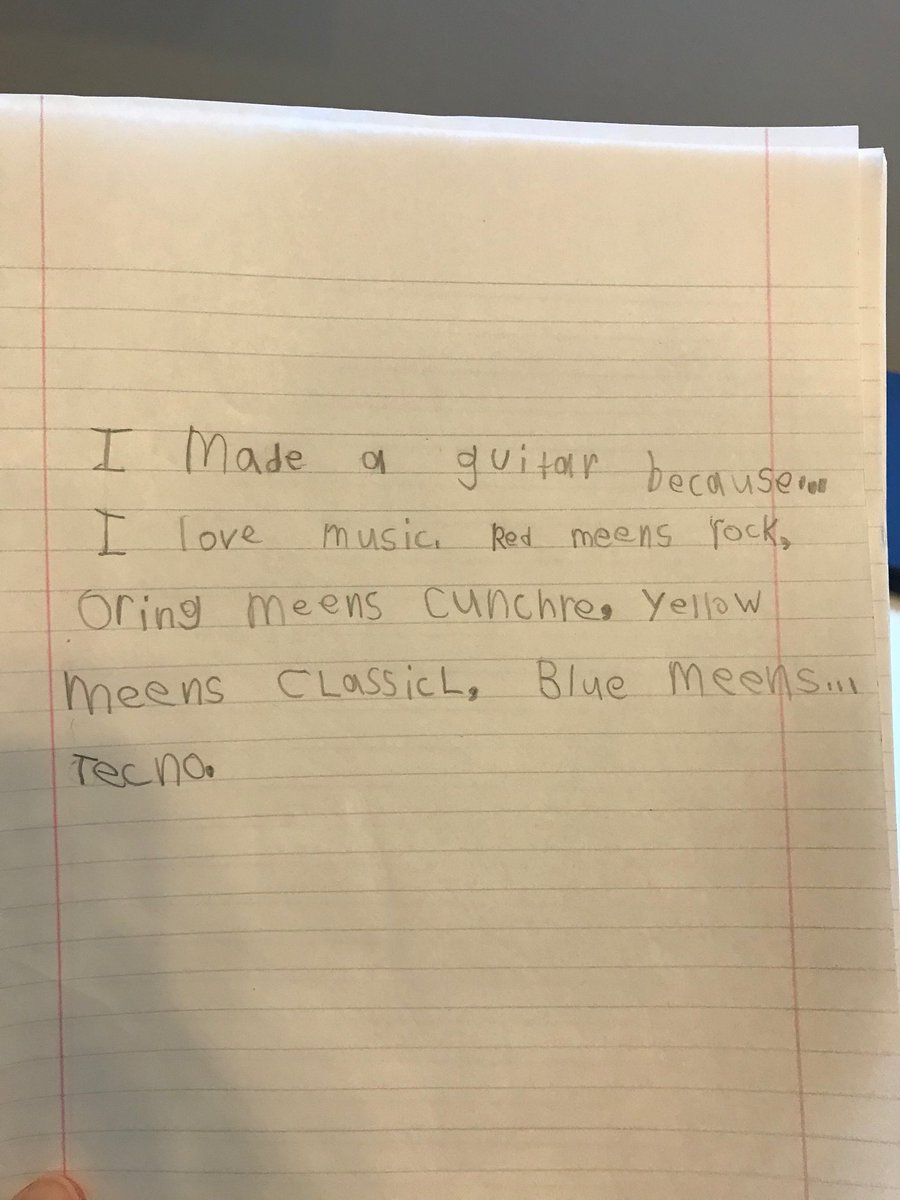 I Made a guitar because...
I love music. Red meens rock,
Oring meens Cunchre, Yellow
meens CLassicL, Blue meens...
Tecno.